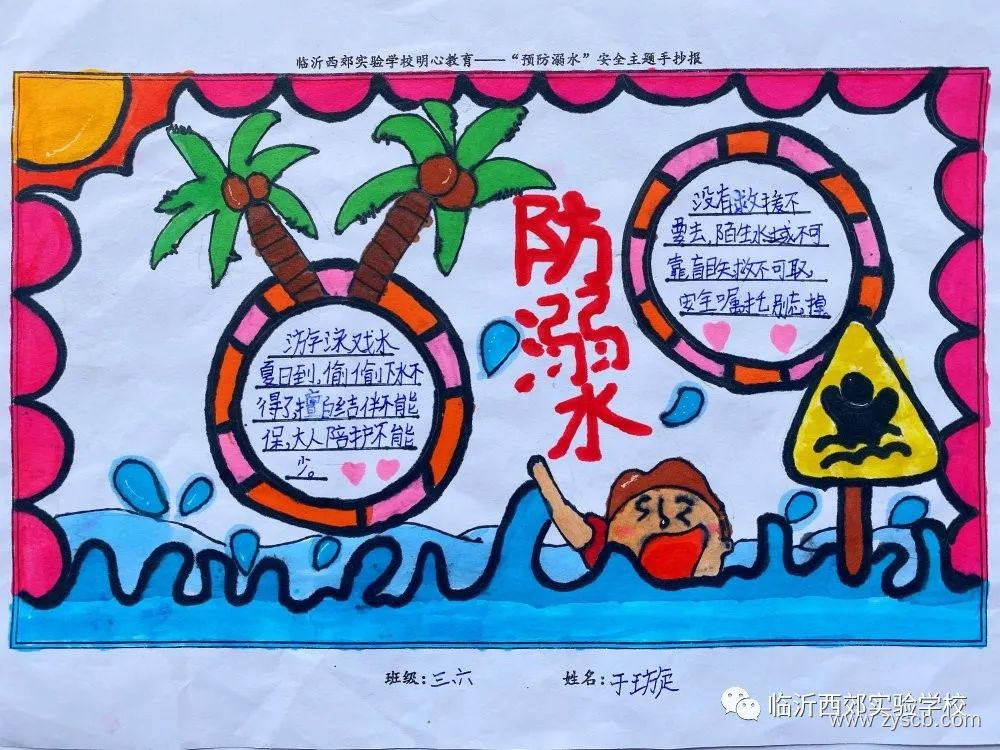 临沂西郊实验学校明心教育——“预防溺水”安全主题手抄报
防溺水
没有救援不
要去,陌生水域不可
靠盲目失救不可取,
安全嘱托别忘掉
游泳戏水
夏日到,偷偷下水不
得了,擅自结伴不能
保,大人陪护不能
少。
班级:三六
姓名:于
临沂西郊实验学校
www.zyscb.com